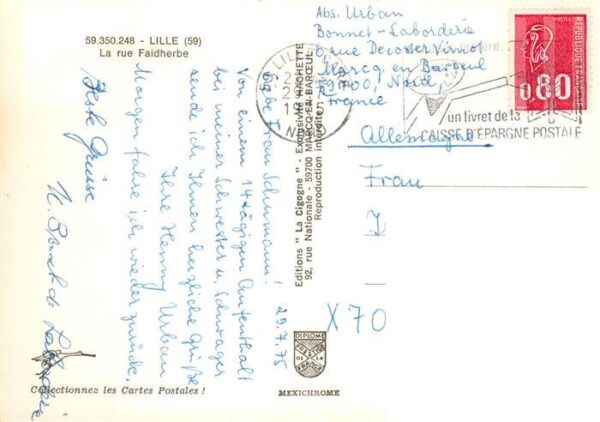 59.350.248 - LILLE (59)
La rue Faidherbe
29.7.75
Liebe Frau Schumann!
Von einem 14tägigen Aufenthalt
bei meiner Schwester u. Schwager
sende ich Ihnen herzliche Grüße
Ihre Henny Urban
Morgen fahre ich wieder zurück.
Beste Grüsse
Editions "La Cigogne" - Exclusivité HACHETTE
92, rue Nationale - 59700 MARCQ-EN-BARŒUL
Reproduction interdite
Abs. Urban
Bonnet-Laborderie
6 rue Decoster Virnot
Marcq en Baroeul
59700, Nord,
France
59 LILLE
NORD
un livret de la
CAISSE D'EPARGNE POSTALE
REPUBLIQUE FRANÇAISE
0,80
Allemagne
Frau
J
X 70
DIPLOME
PRESTIGE
DE LA
FRANCE
MEXICHROME
Collectionnez les Cartes Postales !